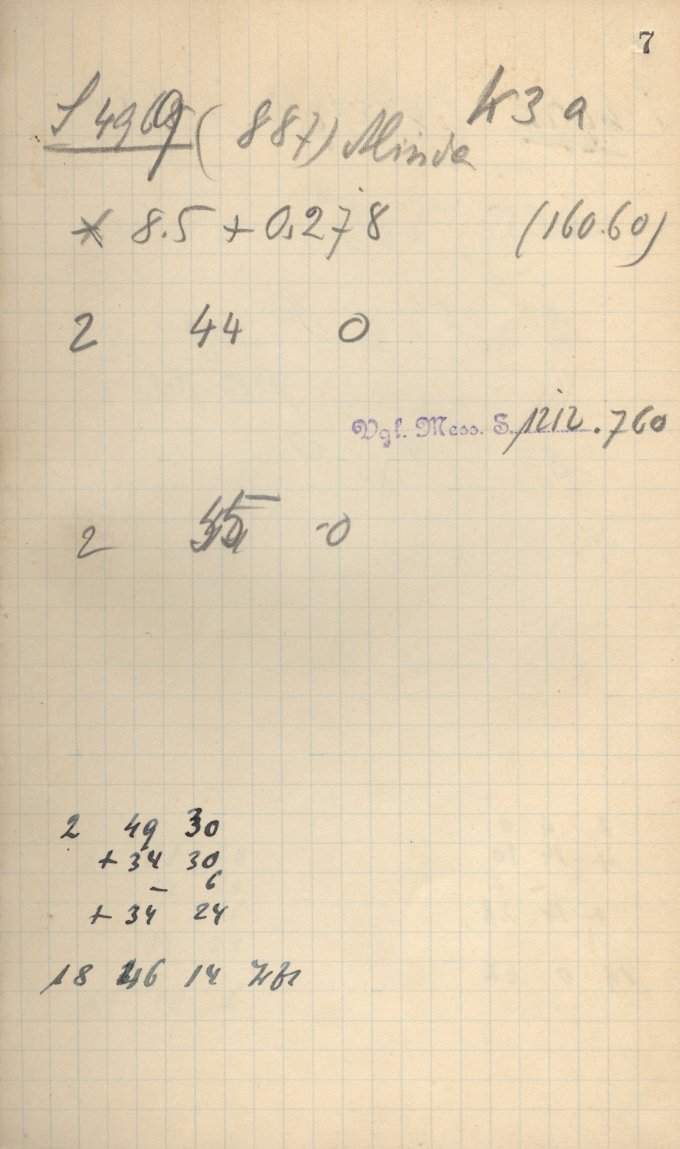 7
K 3 a
(887) Alinda
* 8.5 + 0.278 (160.60)
2 44 0
Vgl. Mess. S. 1212.760
2 -0
2 49 30
+ 34 30
- 6
+ 34 24
18 46 14